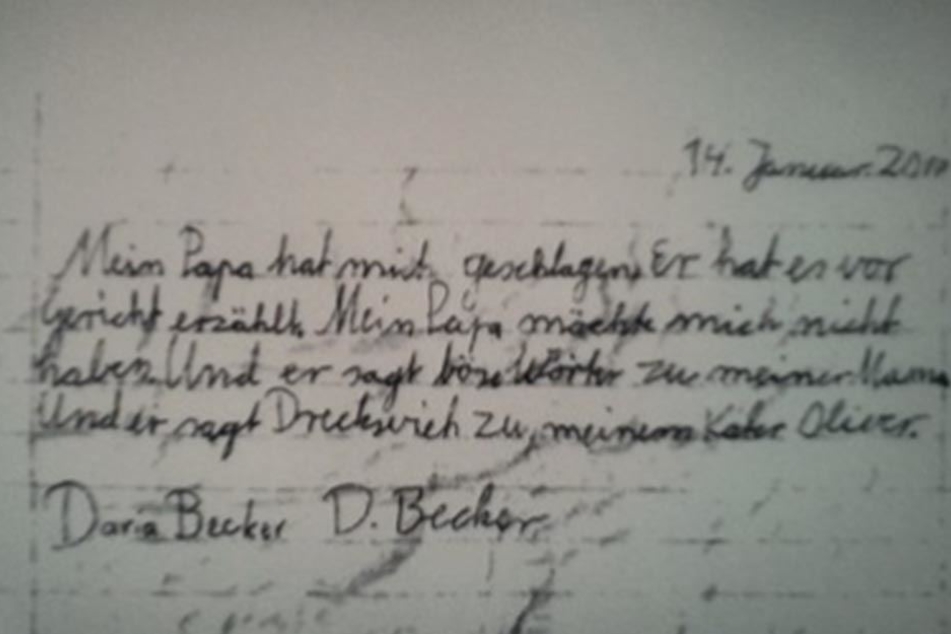 14. Januar 20
Mein Papa hat mich geschlagen. Er hat es vor
Gericht erzählt. Mein Papa möchte mich nicht
haben. Und er sagt böse Wörter zu meiner Mama
Und er sagt Dreckvieh zu meinem Kater Oliver.
Daria Becker D. Becker